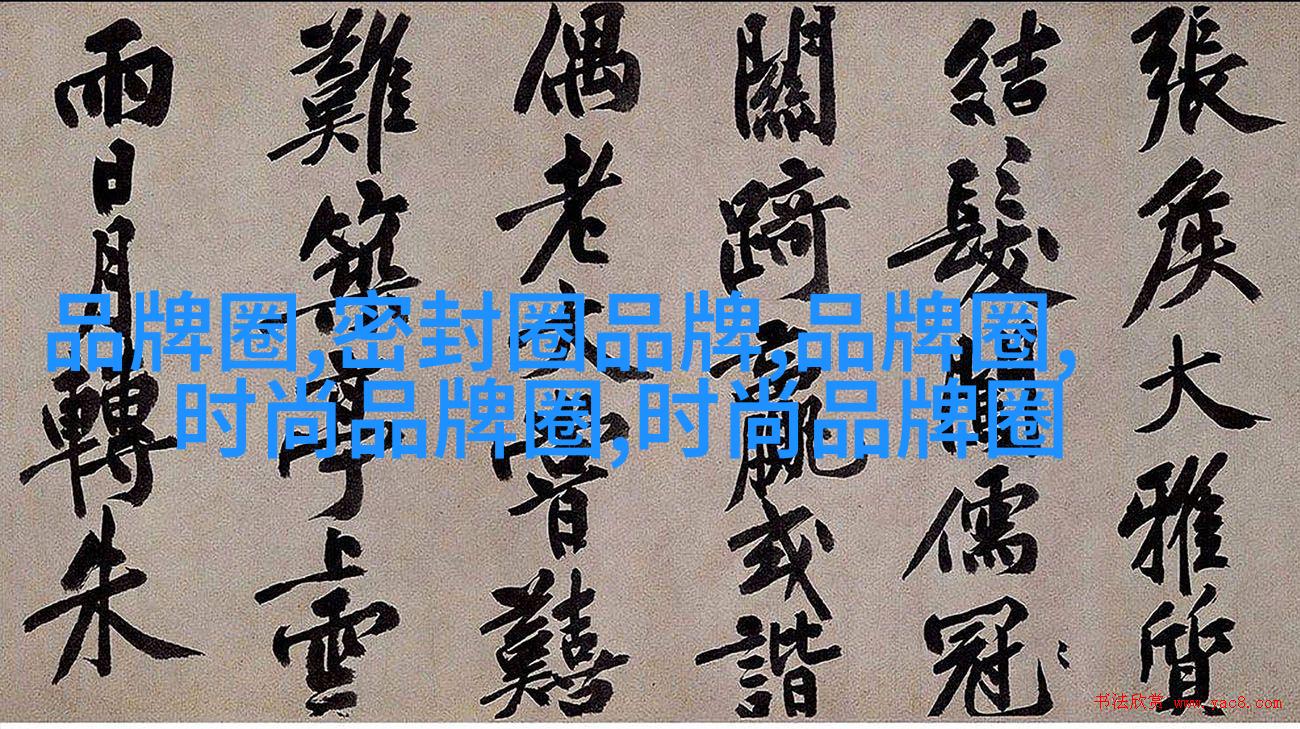 張侯大雅質
結髮儒冠
關踦或諧
偶老囏
難築上雲
雨日月轉朱
品牌圈,密封圈品牌,品牌圈,
时尚品牌圈,时尚品牌圈
书法欣赏 www.yac8.com